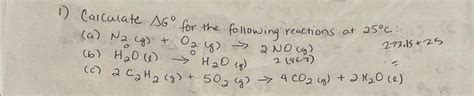 1) Calculate ΔG° for the following reactions at 25°C:
(a) N₂ (g) + O₂ (g) → 2 NO (g)
273.15 + 25
0 0 2 (86.7)
(b) H₂O (l) → H₂O (g)
(c) 2 C₂H₂ (g) + 5O₂ (g) → 4 CO₂ (g) + 2 H₂O (l)